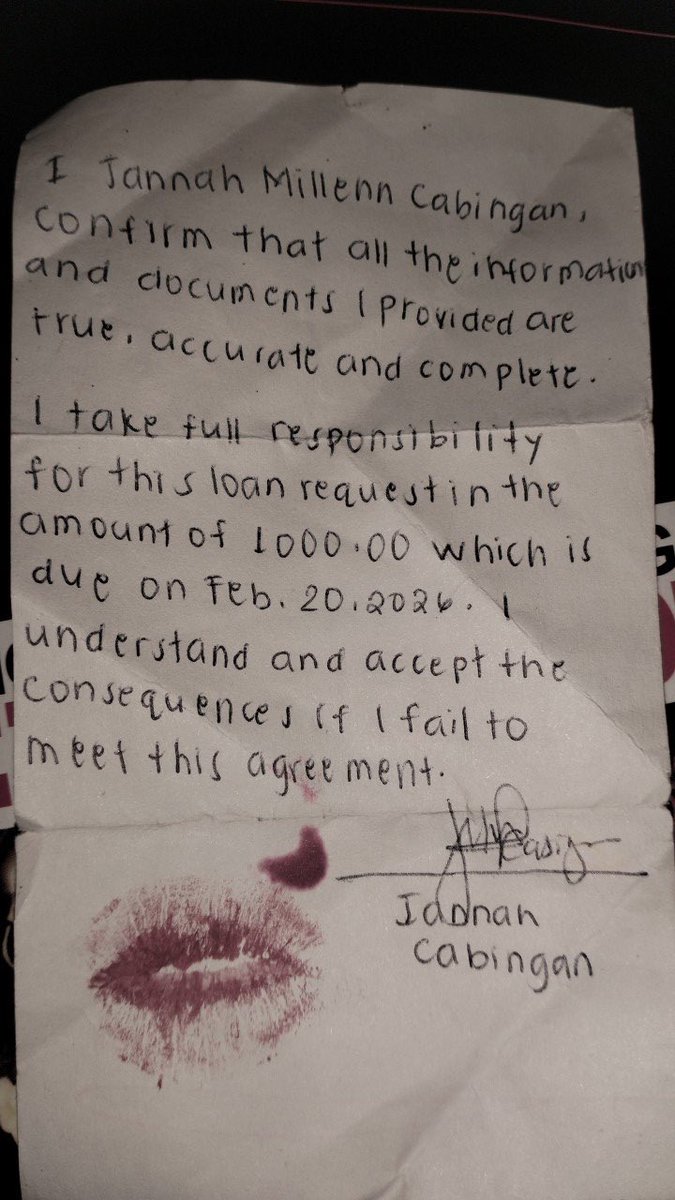 I Jannah Millenn Cabingan,
confirm that all the information
and documents I provided are
true, accurate and complete.
I take full responsibility
for this loan request in the
amount of 1000.00 which is
due on Feb. 20, 2026. I
understand and accept the
consequences if I fail to
meet this agreement.
Jannah
Cabingan